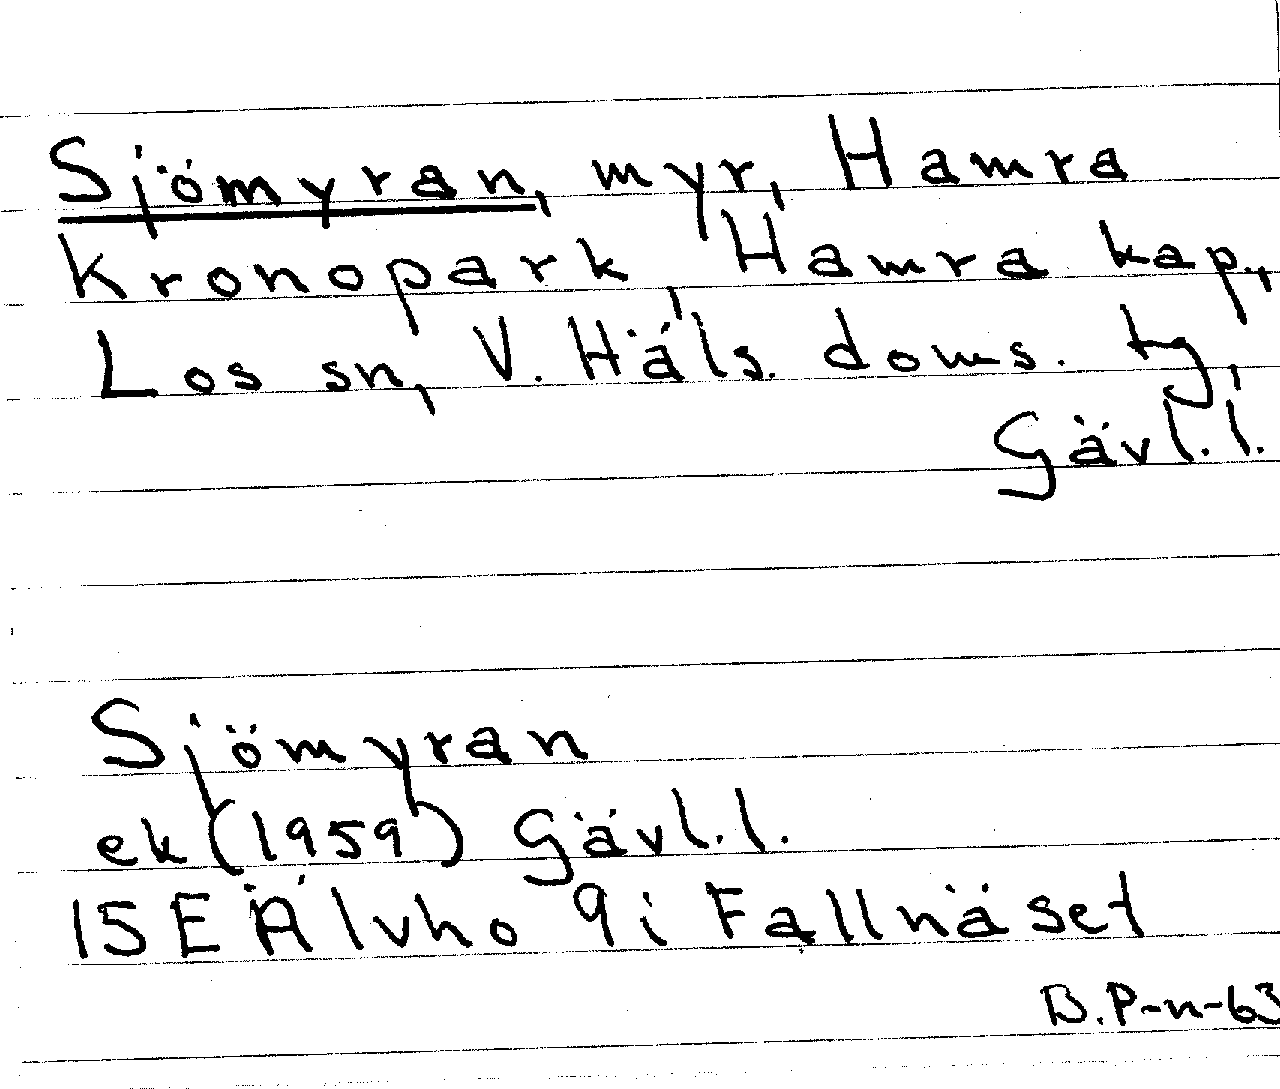 Sjömyran, myr, Hamra
Kronopark, Hamra kap.,
Los sn, V. Häls. doms. tg,
Gävl.l.
Sjömyran
ek (1959) Gävl.l.
15E Älvho 9i Fallnäset
B.P-n-63